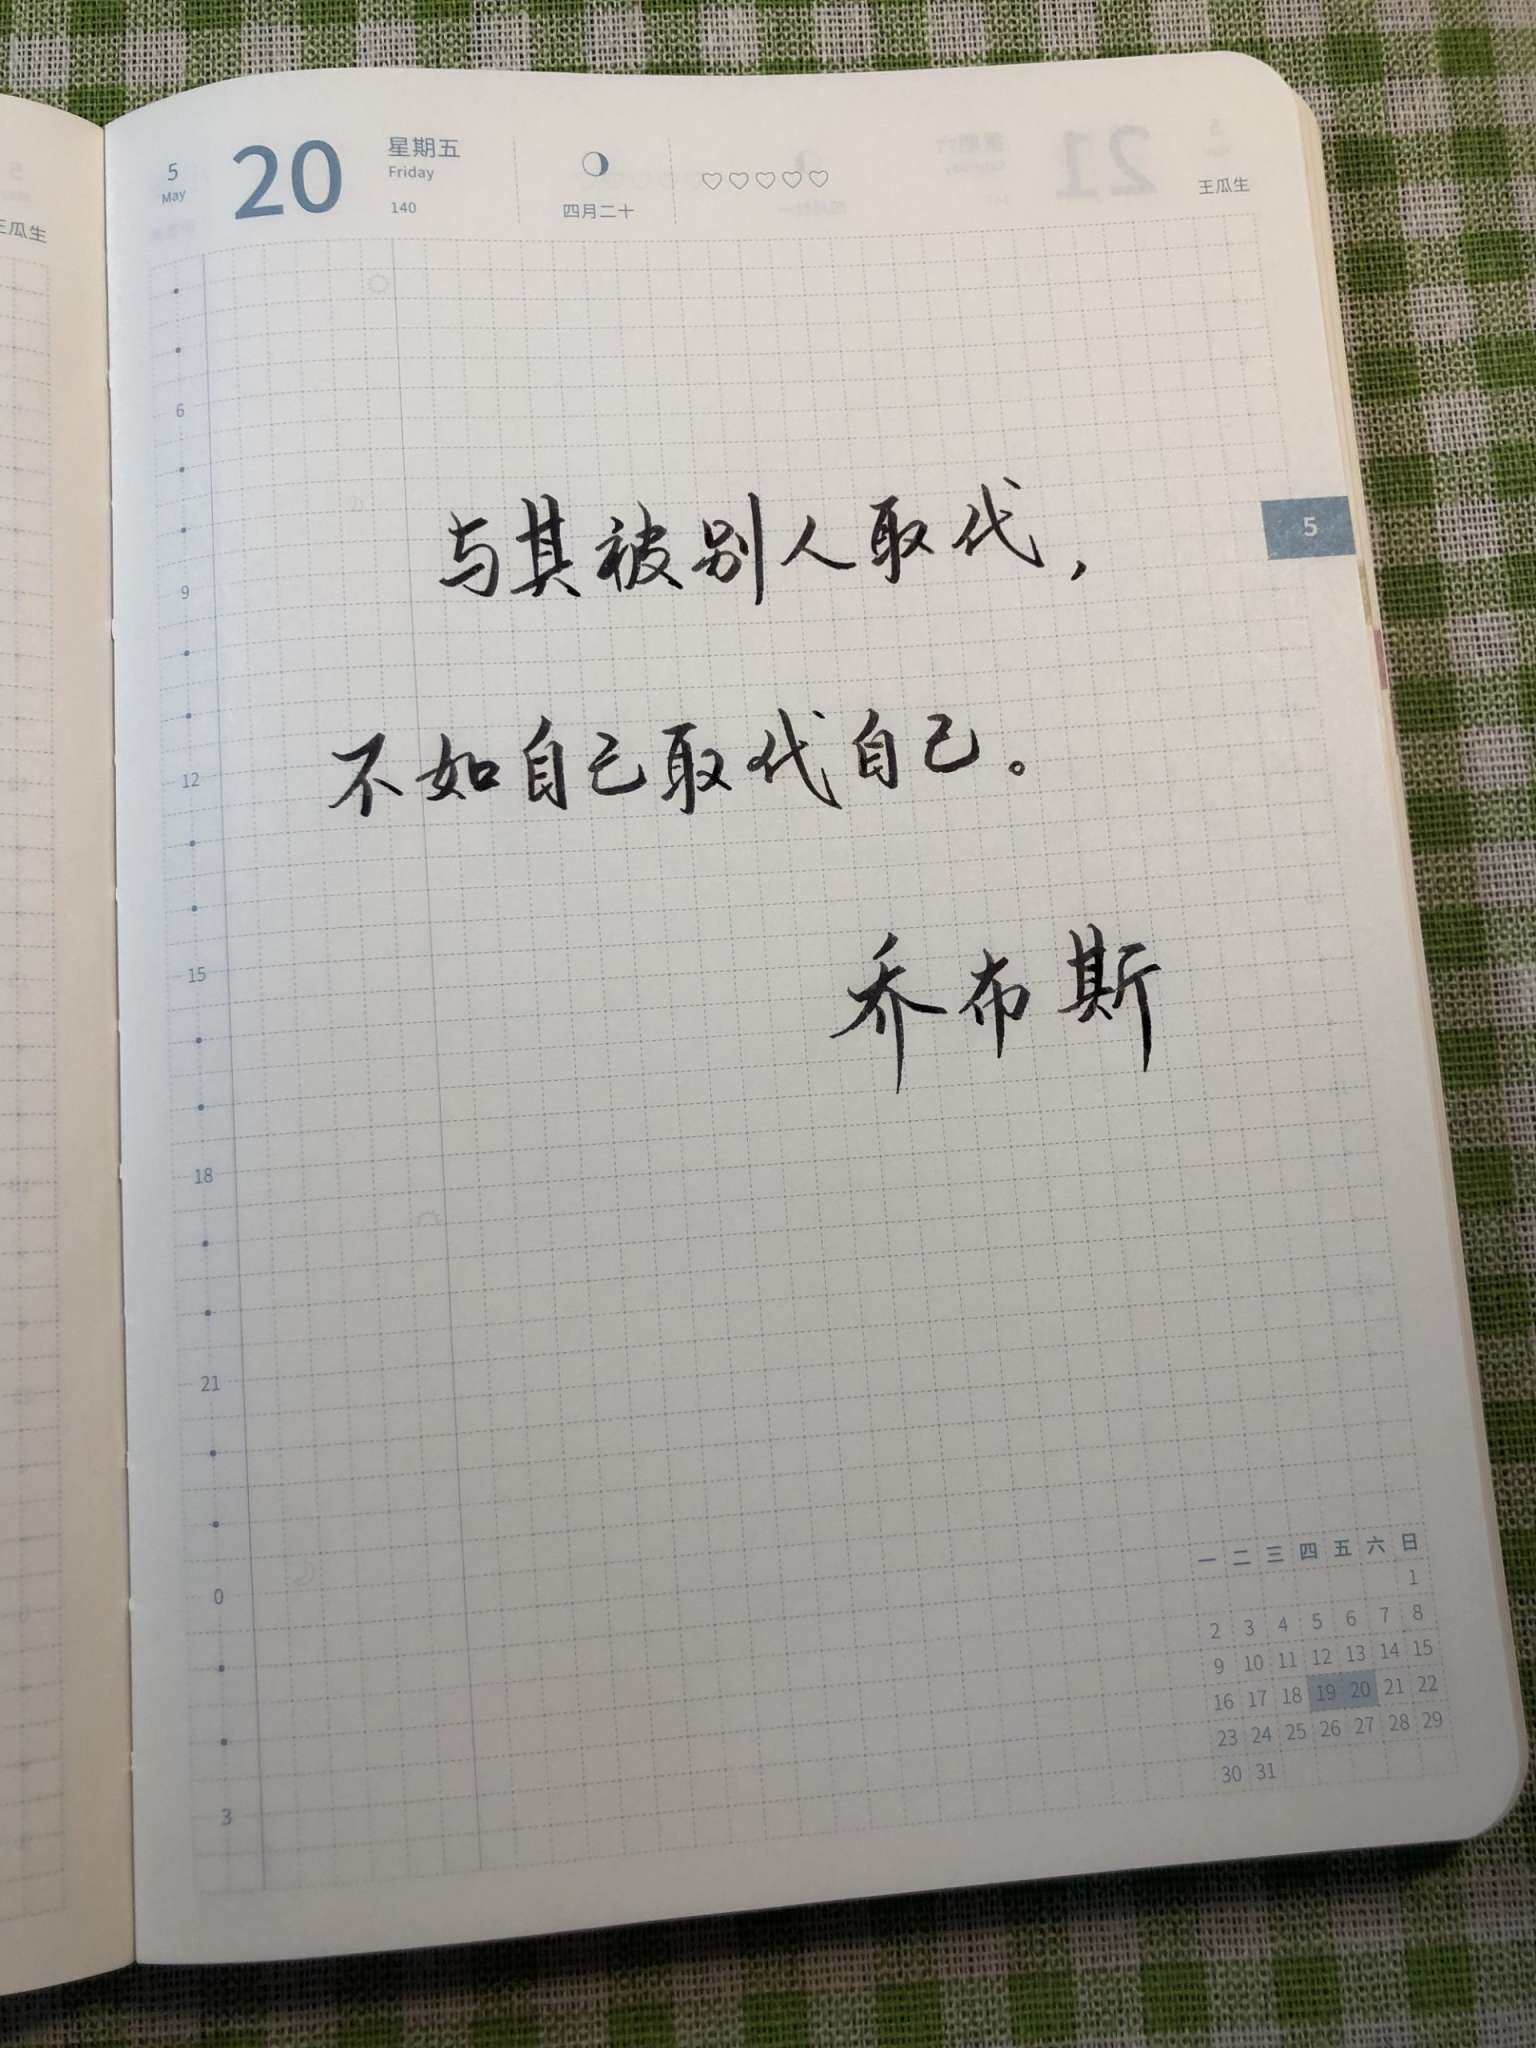 5
May
20
星期五
Friday
140
四月二十
王瓜生
王瓜生
6
9
12
15
18
21
0
3
5
与其被别人取代，
不如自己取代自己。
乔布斯
一 二 三 四 五 六 日
1
2 3 4 5 6 7 8
9 10 11 12 13 14 15
16 17 18 19 20 21 22
23 24 25 26 27 28 29
30 31